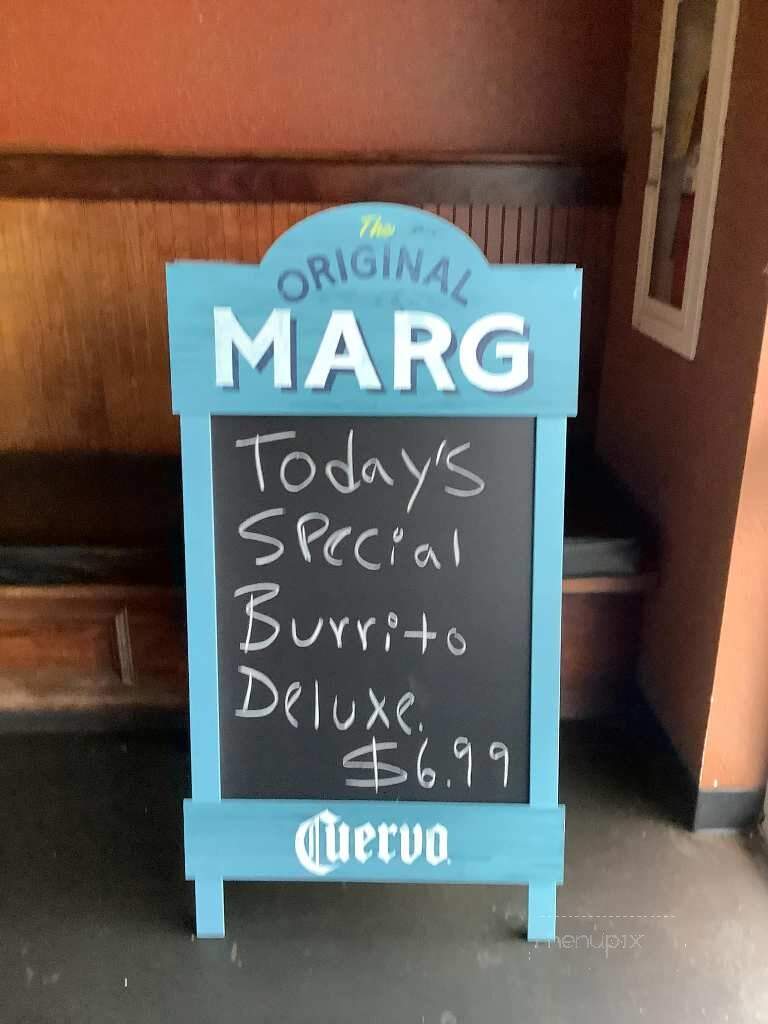 The
ORIGINAL
MARG
Today's
Special
Burrito
Deluxe.
$6.99
Cuervo
menupix